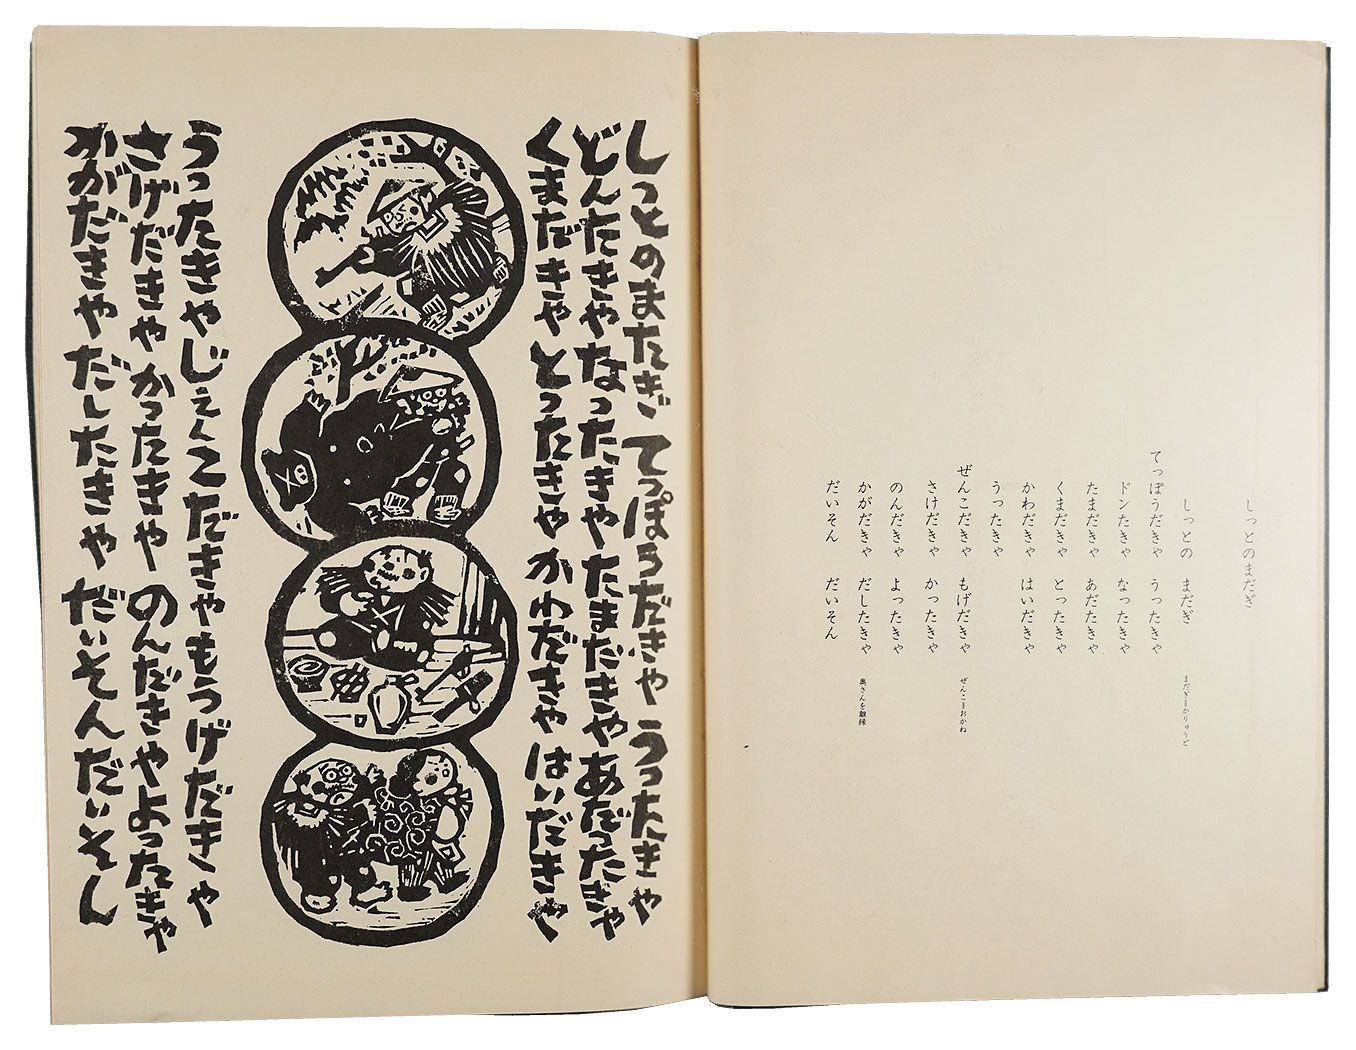 しっとのまだぎ
しっとの　まだぎ　まだぎ＝かりゅうど
てっぽうだきゃ　うったきゃ
ドンたきゃ　なったきゃ
たまだきゃ　あだたきゃ
くまだきゃ　とったきゃ
かわだきゃ　はいだきゃ
うったきゃ
ぜんこだきゃ　もげだきゃ　ぜんこ＝おかね
さけだきゃ　かったきゃ
のんだきゃ　よったきゃ
かがだきゃ　だしたきゃ　奥さんを離縁
だいそん　だいそん
しっとのまたぎ　てっぽうだきゃ　うったきゃ
どんたきゃなったきゃたまだきゃあだったきゃ
くまだきゃ　とったきゃ　かわだきゃ　はいだきゃ
うったきゃじぇんこだきゃもうげだきゃ
さげだきゃかったきゃ　のんだきゃよったきゃ
かがだきゃ　だしたきゃ　だいそんだいそん